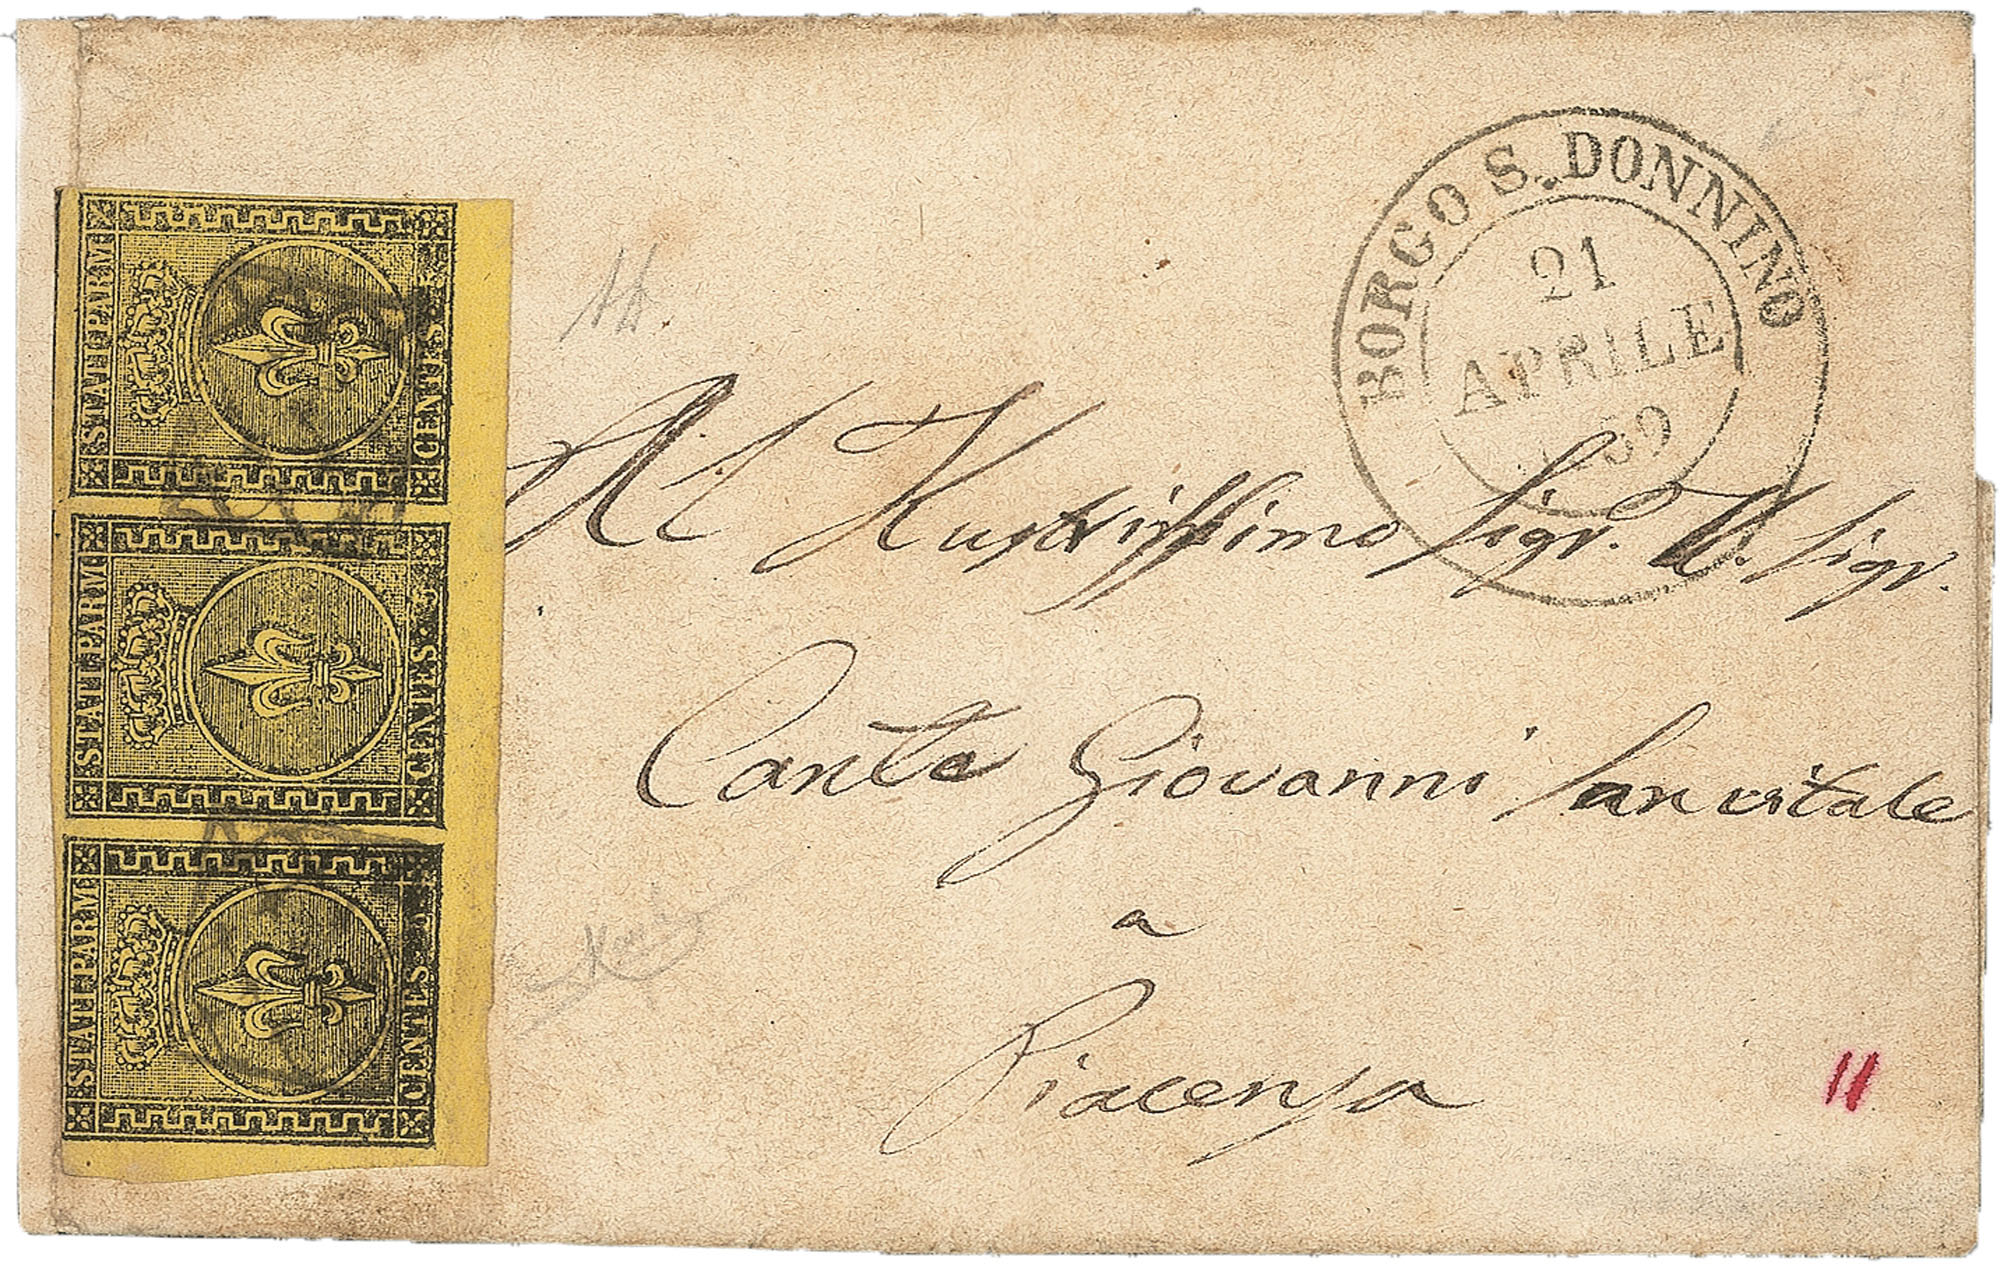 STATI PARM
CENTES. 5
STATI PARM
CENTES. 5
STATI PARM
CENTES.
BORGO S. DONNINO
21
APRILE
59
All Illustrissimo Sigr. Sigr.
Conte Giovanni Sanvitale
a
Piacenza
11